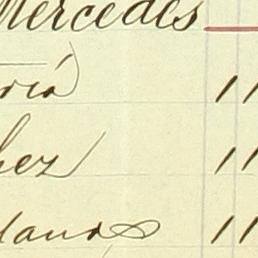 Mercedes
ría 11
hez 11
land 11